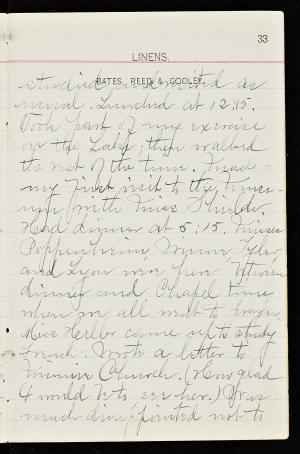 33
LINENS.
BATES, REED & COOLEY.
studied and recited as
usual. Lunched at 12:15.
Took part of my exercise
on the Lake, then walked
the rest of the time. Made
my first visit to the
with Miss
Had dinner at 5:15. Misses
Poppenheim, Winnie Tyler
and Lyon were here between
dinner and Chapel time
when we all went to prayers.
Miss Heller came up to study
French. Wrote a letter to
Church. (How glad
I would be to see her.) Was
much disappointed not to